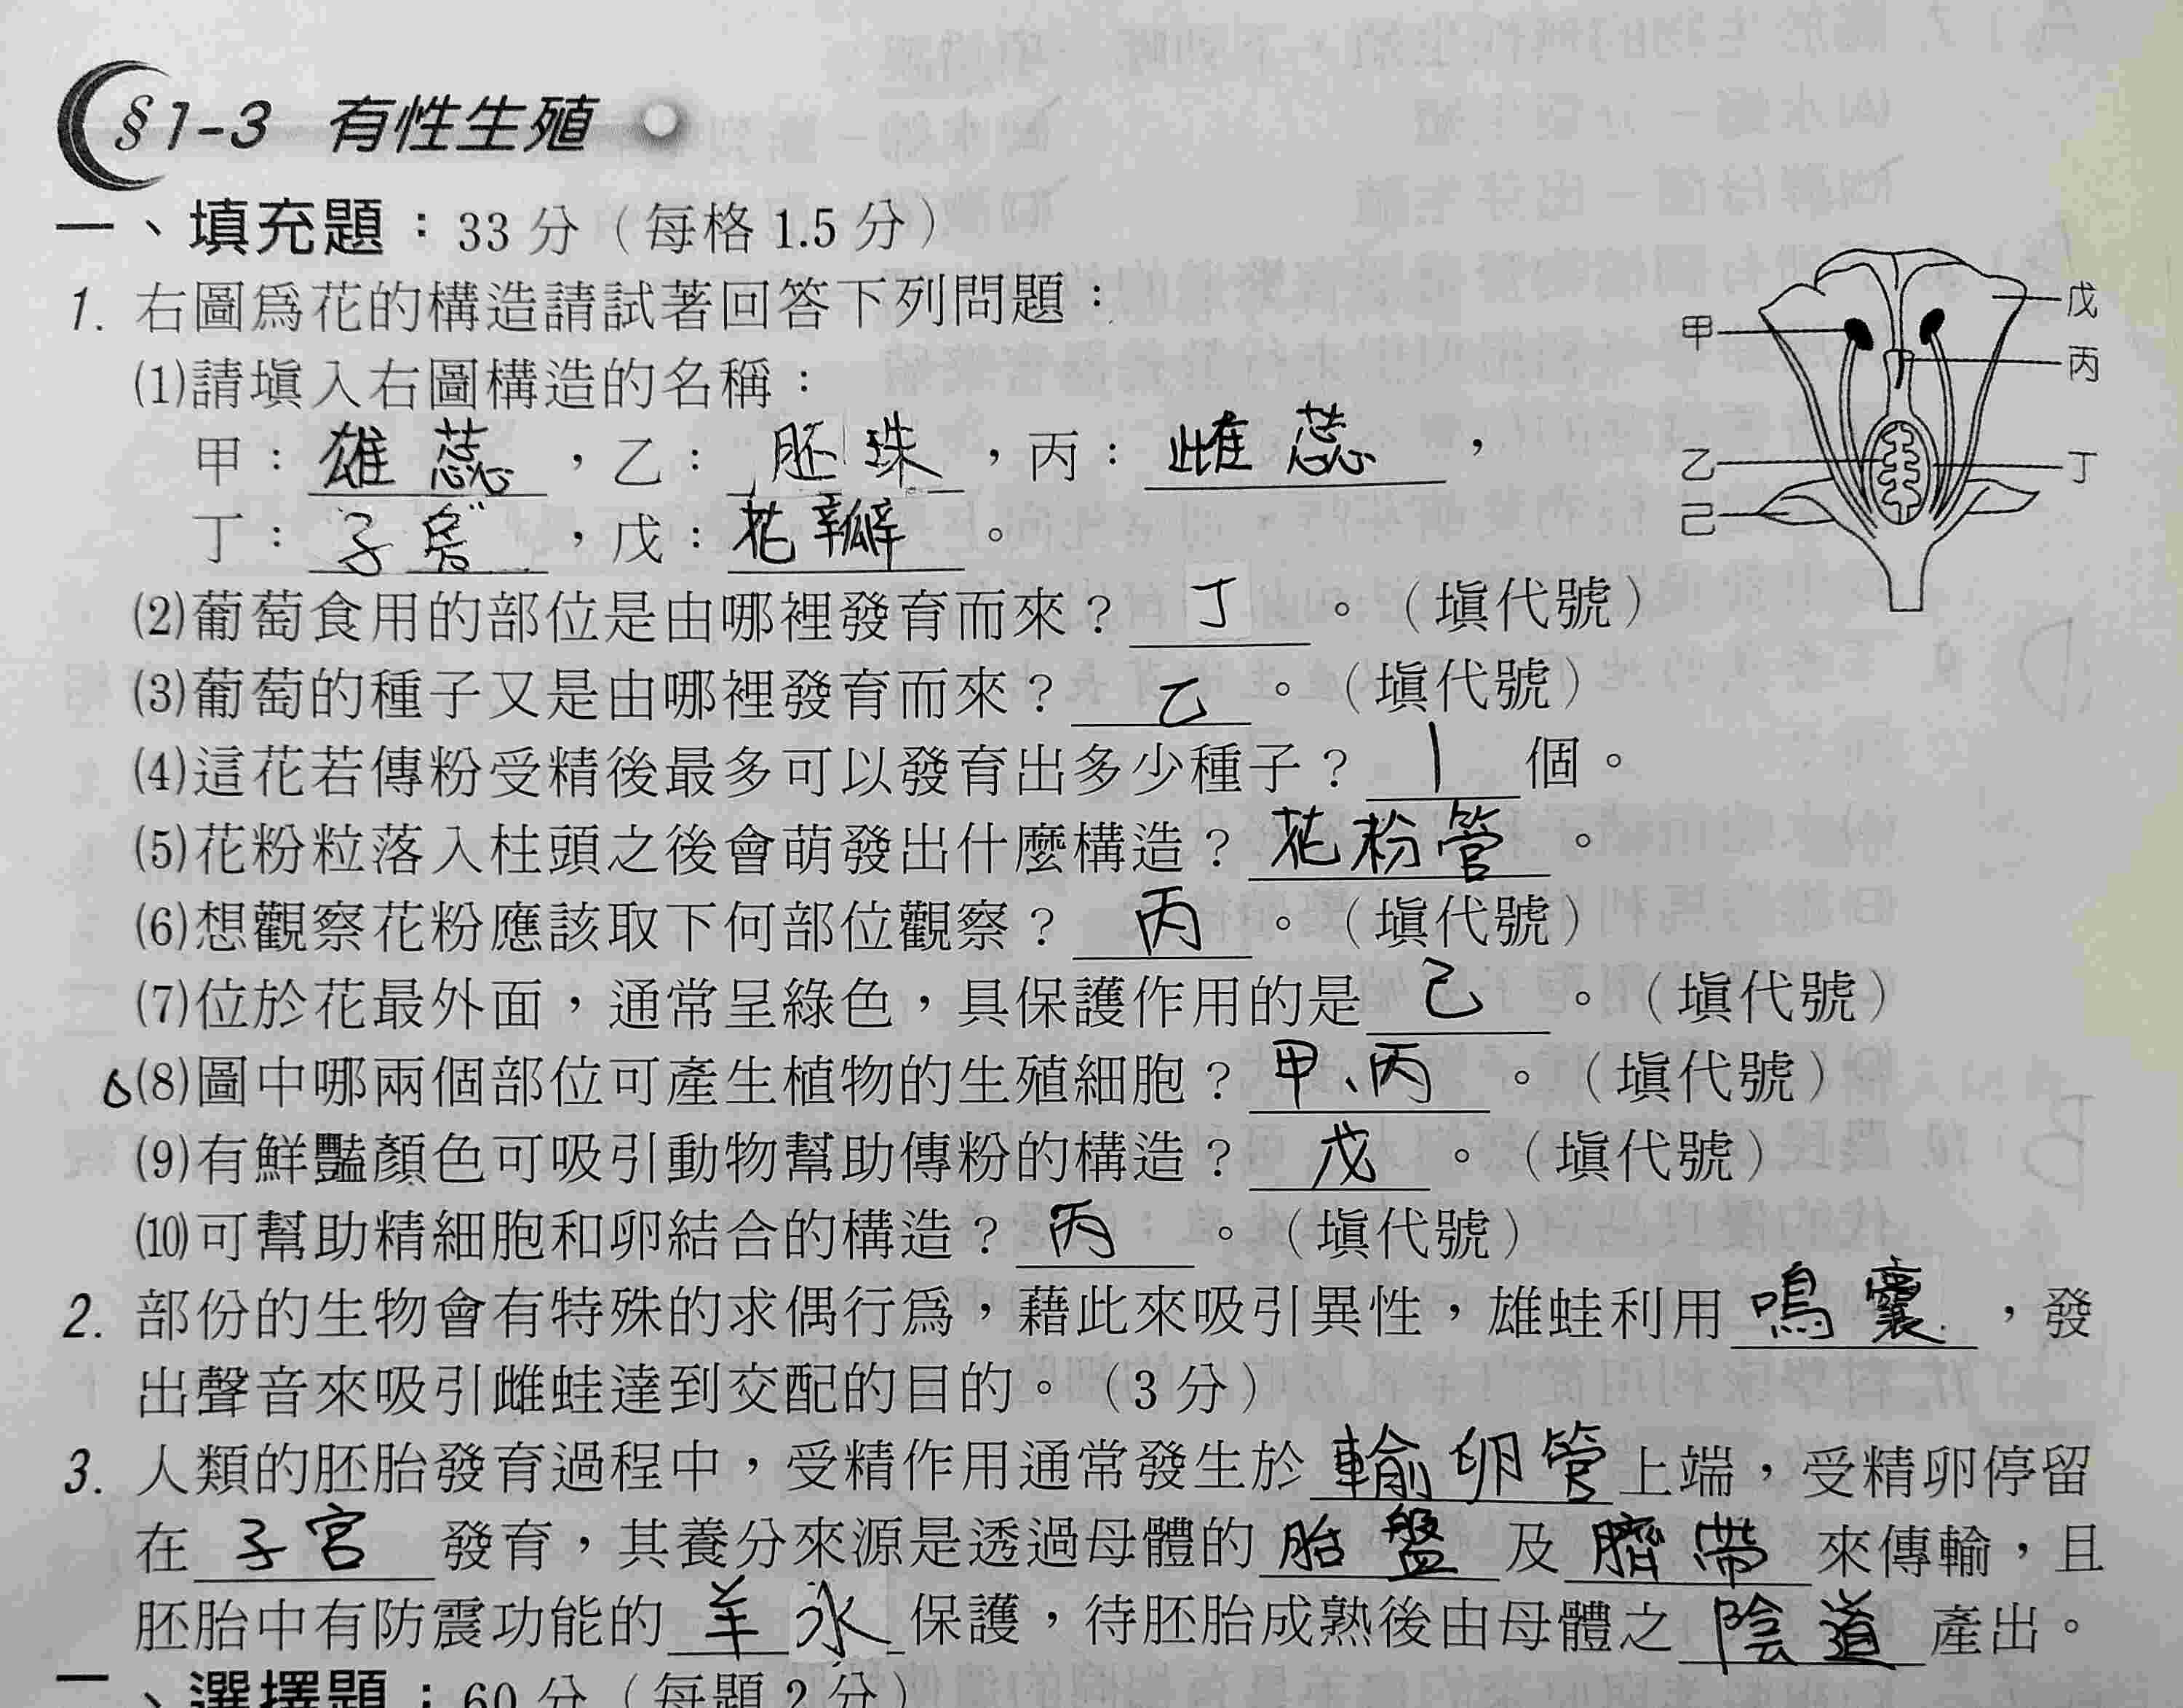 §1-3 有性生殖
一、填充題：33 分（每格 1.5 分）
1. 右圖爲花的構造請試著回答下列問題：
(1)請塡入右圖構造的名稱：
甲：雄蕊，乙：胚珠，丙：雌蕊，
丁：子房，戊：花瓣。
(2)葡萄食用的部位是由哪裡發育而來？丁。（塡代號）
(3)葡萄的種子又是由哪裡發育而來？乙。（塡代號）
(4)這花若傳粉受精後最多可以發育出多少種子？1個。
(5)花粉粒落入柱頭之後會萌發出什麼構造？花粉管。
(6)想觀察花粉應該取下何部位觀察？丙。（塡代號）
(7)位於花最外面，通常呈綠色，具保護作用的是己。（塡代號）
(8)圖中哪兩個部位可產生植物的生殖細胞？甲、丙。（塡代號）
(9)有鮮豔顏色可吸引動物幫助傳粉的構造？戊。（塡代號）
(10)可幫助精細胞和卵結合的構造？丙。（塡代號）
甲
乙
己
戊
丙
丁
2. 部份的生物會有特殊的求偶行爲，藉此來吸引異性，雄蛙利用鳴囊，發
出聲音來吸引雌蛙達到交配的目的。（3 分）
3. 人類的胚胎發育過程中，受精作用通常發生於輸卵管上端，受精卵停留
在子宮發育，其養分來源是透過母體的胎盤及臍帶來傳輸，且
胚胎中有防震功能的羊水保護，待胚胎成熟後由母體之陰道產出。
、選擇題：60 分（每題 2 分）